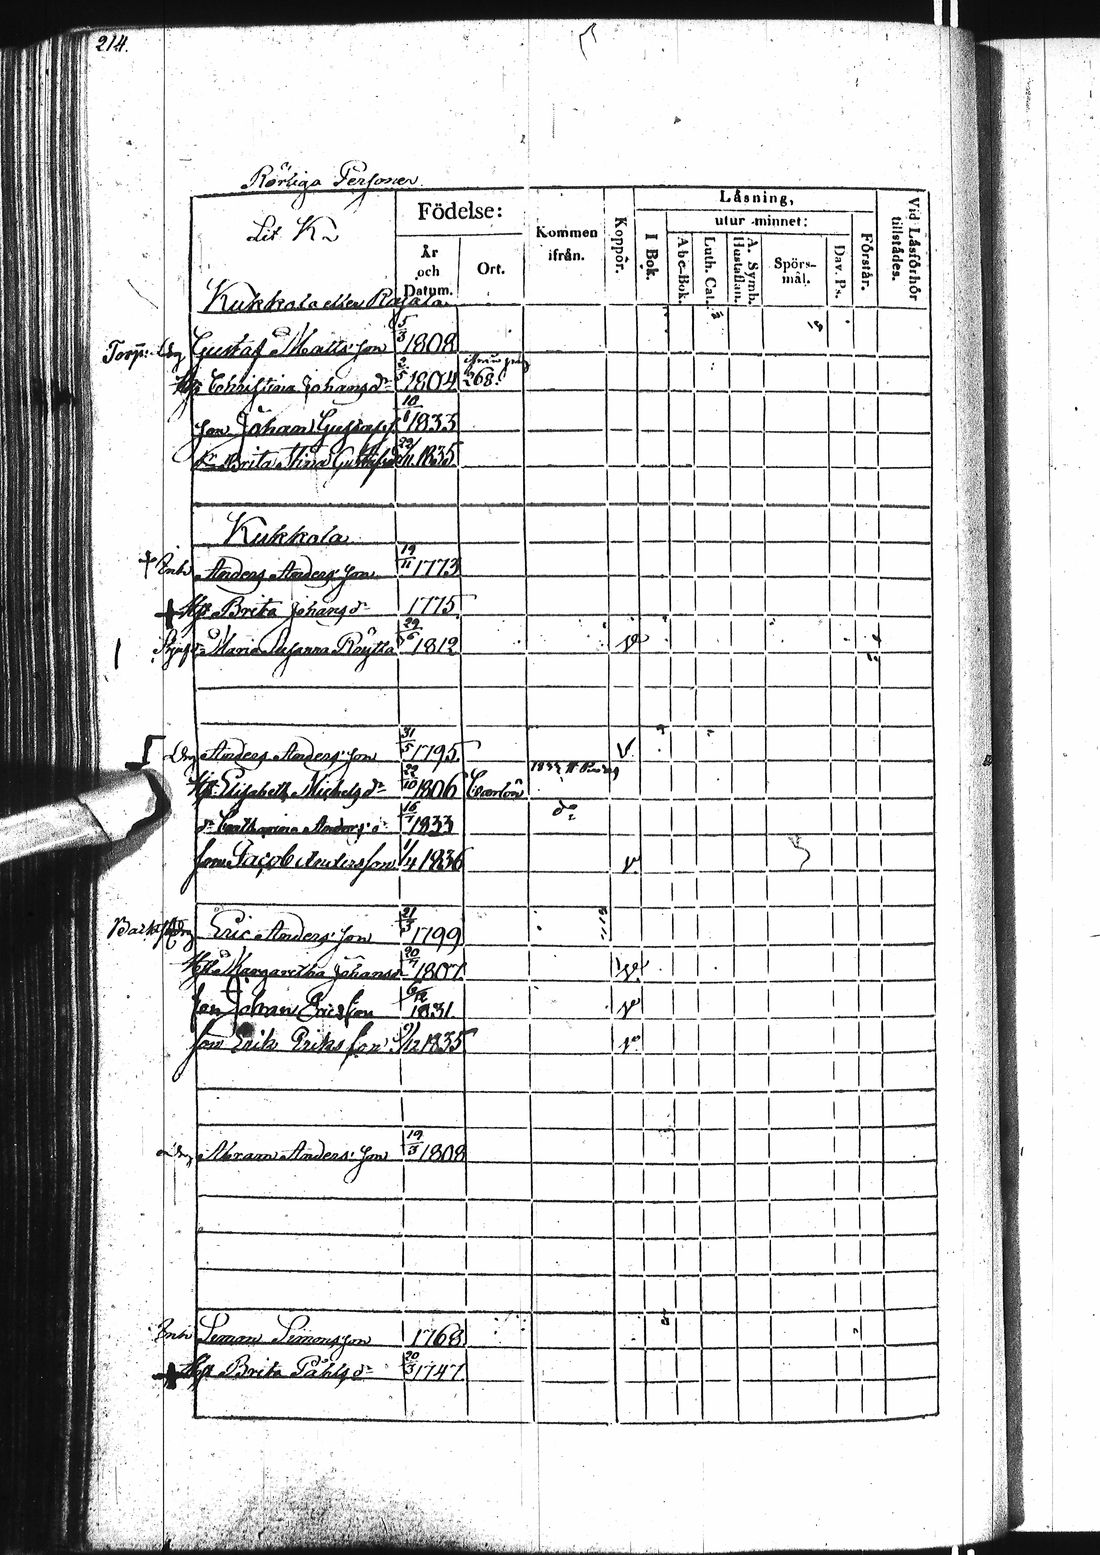 214.
Rörliga Personer
Lit K
Födelse:
År och Datum.
Ort.
Kommen ifrån.
Koppor.
Läsning,
I Bok.
utur minnet:
Abc-Bok.
Luth. Cat.
A. Symb. Hustaflan.
Spörs-mål.
Dav. Ps.
Förstår.
Vid Läsförhör tillstädes.
Kukkola eller Rajala
Torp: Gustaf Matts son 5/3 1808
Christina Johansdr 2/5 1804 268
son Johan Gustafs 18/1 1833
dr Brita Stina Gustafsdr 22/11 1835
Kukkola
† Inh Anders Anders son 19/11 1773
† Brita Johansdr 1775
Maria Susanna 29/6 1812 v
Anders Anders son 31/5 1795 v
Elisabeth Michelsdr 22/10 1806 Carlön
dr Catharina Anders dr 16/7 1833 do
son Jacob Andersson 1/4 1836 v
Eric Anders son 21/3 1799
Margaretha Johansdr 20/7 1807 v
son Johan Ericsson 6/12 1831 v
son Erik Eriksson 9/12 1835 v
Abram Anders son 19/3 1808
Inh Simon Simonsson 1768
† Brita Påhlsdr 20/3 1747